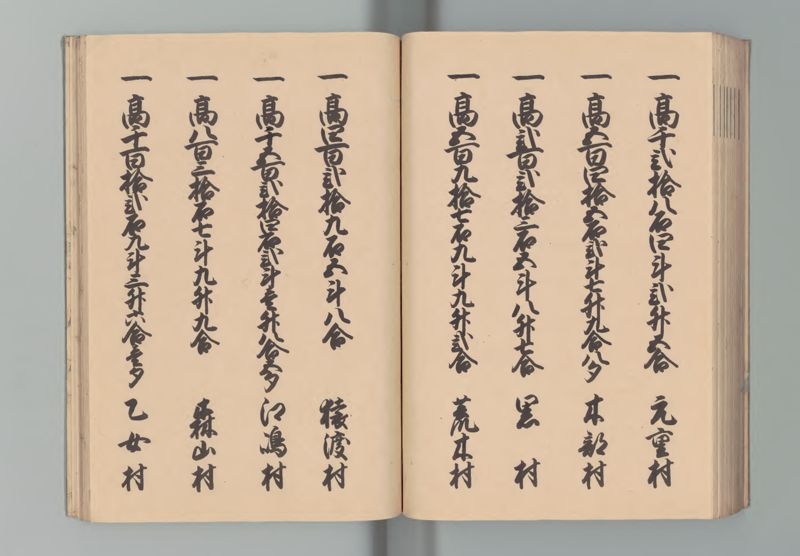 一 高千弐拾八石四斗弐升五合 元重村
一 高五百四拾五石弐斗七升九合八夕 木部村
一 高弐百弐拾三石五斗八升七合 黒村
一 高五百九拾七石九斗九升弐合 荒木村
一 高四百弐拾九石五斗八合 猿渡村
一 高千五百弐拾四石弐斗壱升八合五夕 江嶋村
一 高八百三拾石七斗九升九合 森山村
一 高千百拾弐石九斗三升六合壱夕 乙女村